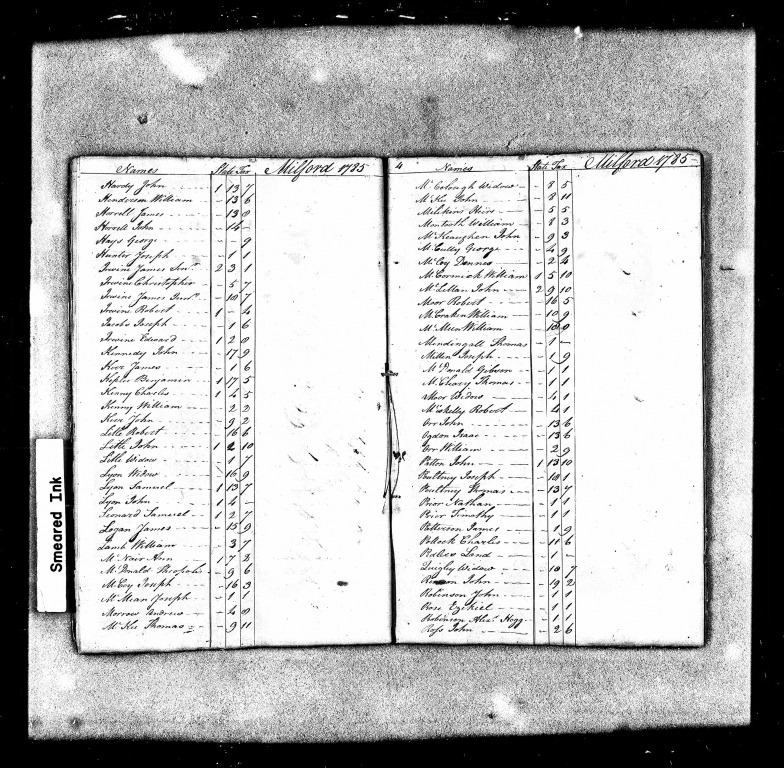 Names State Tax Milford 1785
Hardy John 1 13 7
Henderson William - 13 6
Howell James - 13 0
Howell John - 14 -
Hays George - - 9
Hunter Joseph - 1 1
Irwine James Senr. 2 3 1
Irwine Christopher - 5 7
Irwine James Junr. - 10 7
Irwine Robert 1 - 4
Jacobs Joseph - 1 6
Irwine Edward 1 2 0
Kennedy John - 17 9
Kerr James - 1 6
Kepler Benjamin 1 17 5
Kenny Charles 1 4 5
Kenny William - 2 2
Kerr John - 9 2
Litle Robert - 16 6
Litle John 1 2 10
Litle Widow - 7 7
Lyon Widow - 16 9
Lyon Samuel 1 13 7
Lyon John 1 4 -
Leonard Samuel 1 2 7
Logan James - 15 9
Lamb William - 3 7
McNair Ann 1 7 2
McDonald - 9 6
McCoy Joseph - 16 3
McMean Joseph - 1 1
Morrow Andrew - 4 0
McKee Thomas - 9 11
4 Names State Tax Milford 1785
McColough Widow - 8 5
McKee John - 2 11
Milikins Heirs - 5 5
Monteoth William - 8 3
McKeaughen John - 9 3
McCully George - 4 9
McCoy Dennes - 2 4
McCormick William 1 5 10
McLellan John 2 9 10
Moor Robert - 16 5
McCraken William - 10 9
McMeen William - 10 0
Mendingall Thomas - 1 -
Millen Joseph - 1 9
McDonald Gibson - 1 1
McCleary Thomas - 1 1
Moor Widow - 4 1
McSkelly Robert - 4 1
Orr John - 13 6
Ogdon Isaac - 13 6
Orr William - 2 9
Patton John 1 13 10
Pultney Joseph - 10 1
Pultney Thomas - 13 7
Prior Nathan - 1 1
Prior Timothy - 1 1
Patterson James - 1 9
Pollock Charles - 11 6
Land - 1 -
Quigly Widow - 10 7
John - 19 2
Robinson John - 1 1
Rose Ezekiel - 1 1
Robinson Alexr. Hogg - 1 1
Ross John - 2 6
Smeared Ink